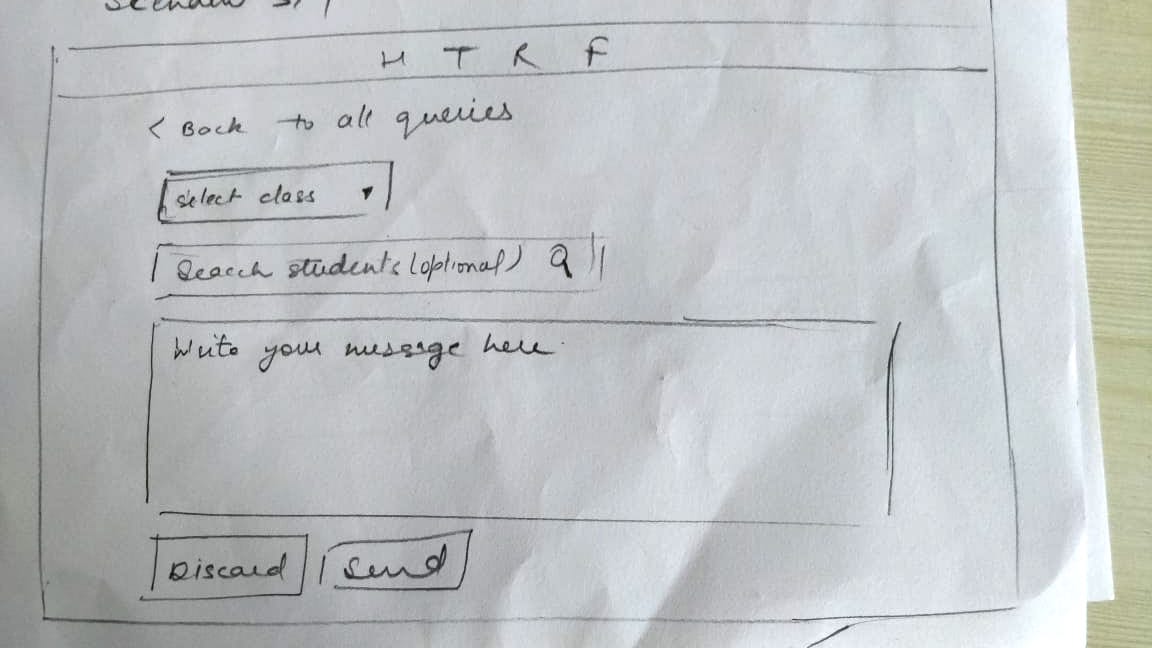 H T R F
< Back to all queries
Select class ▾
Search students (optional)
Write your message here
Discard Send